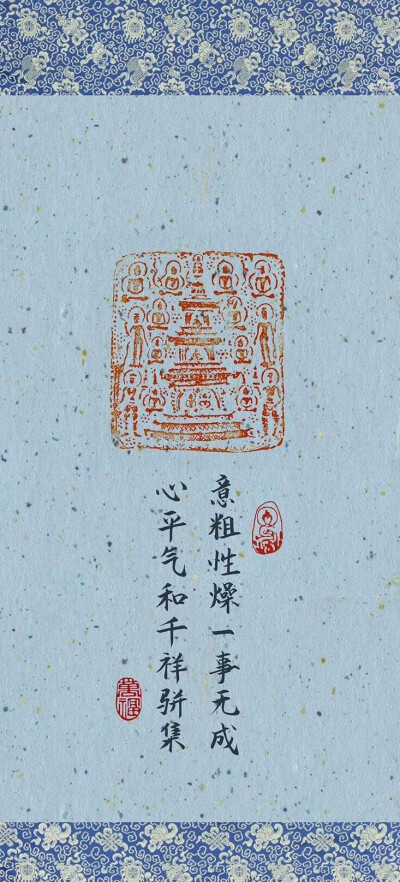 意粗性燥一事无成
心平气和千祥骈集
萬福